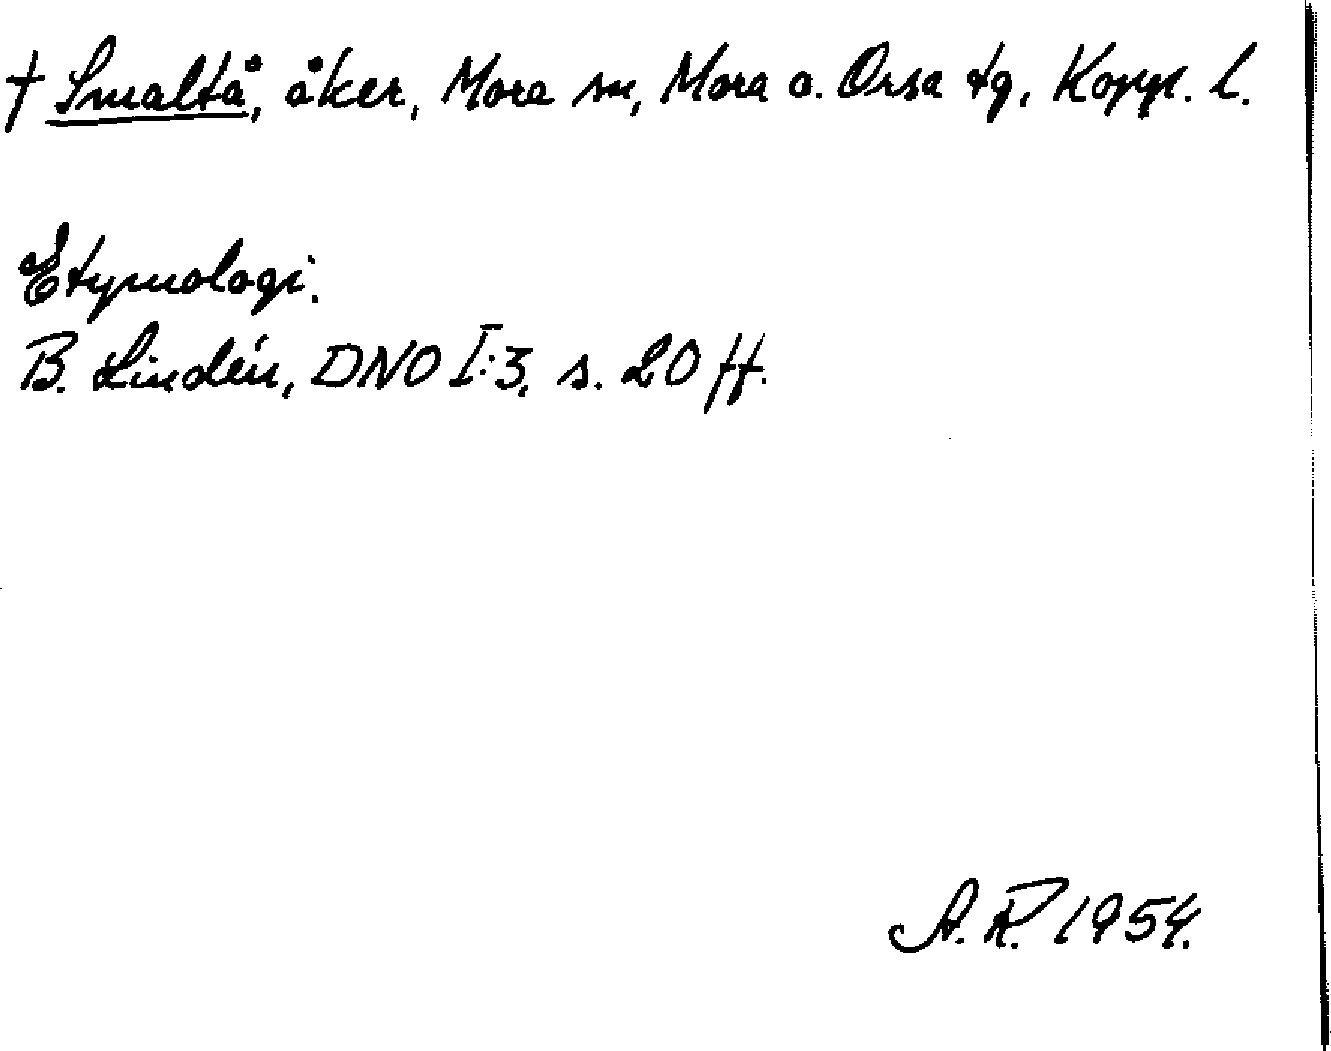 † Smaltå, åker, Mora sn, Mora o. Orsa tg, Kopp. l.
Etymologi.
B. Lindén, DNO I:3, s. 20 ff.
A.R. 1954.